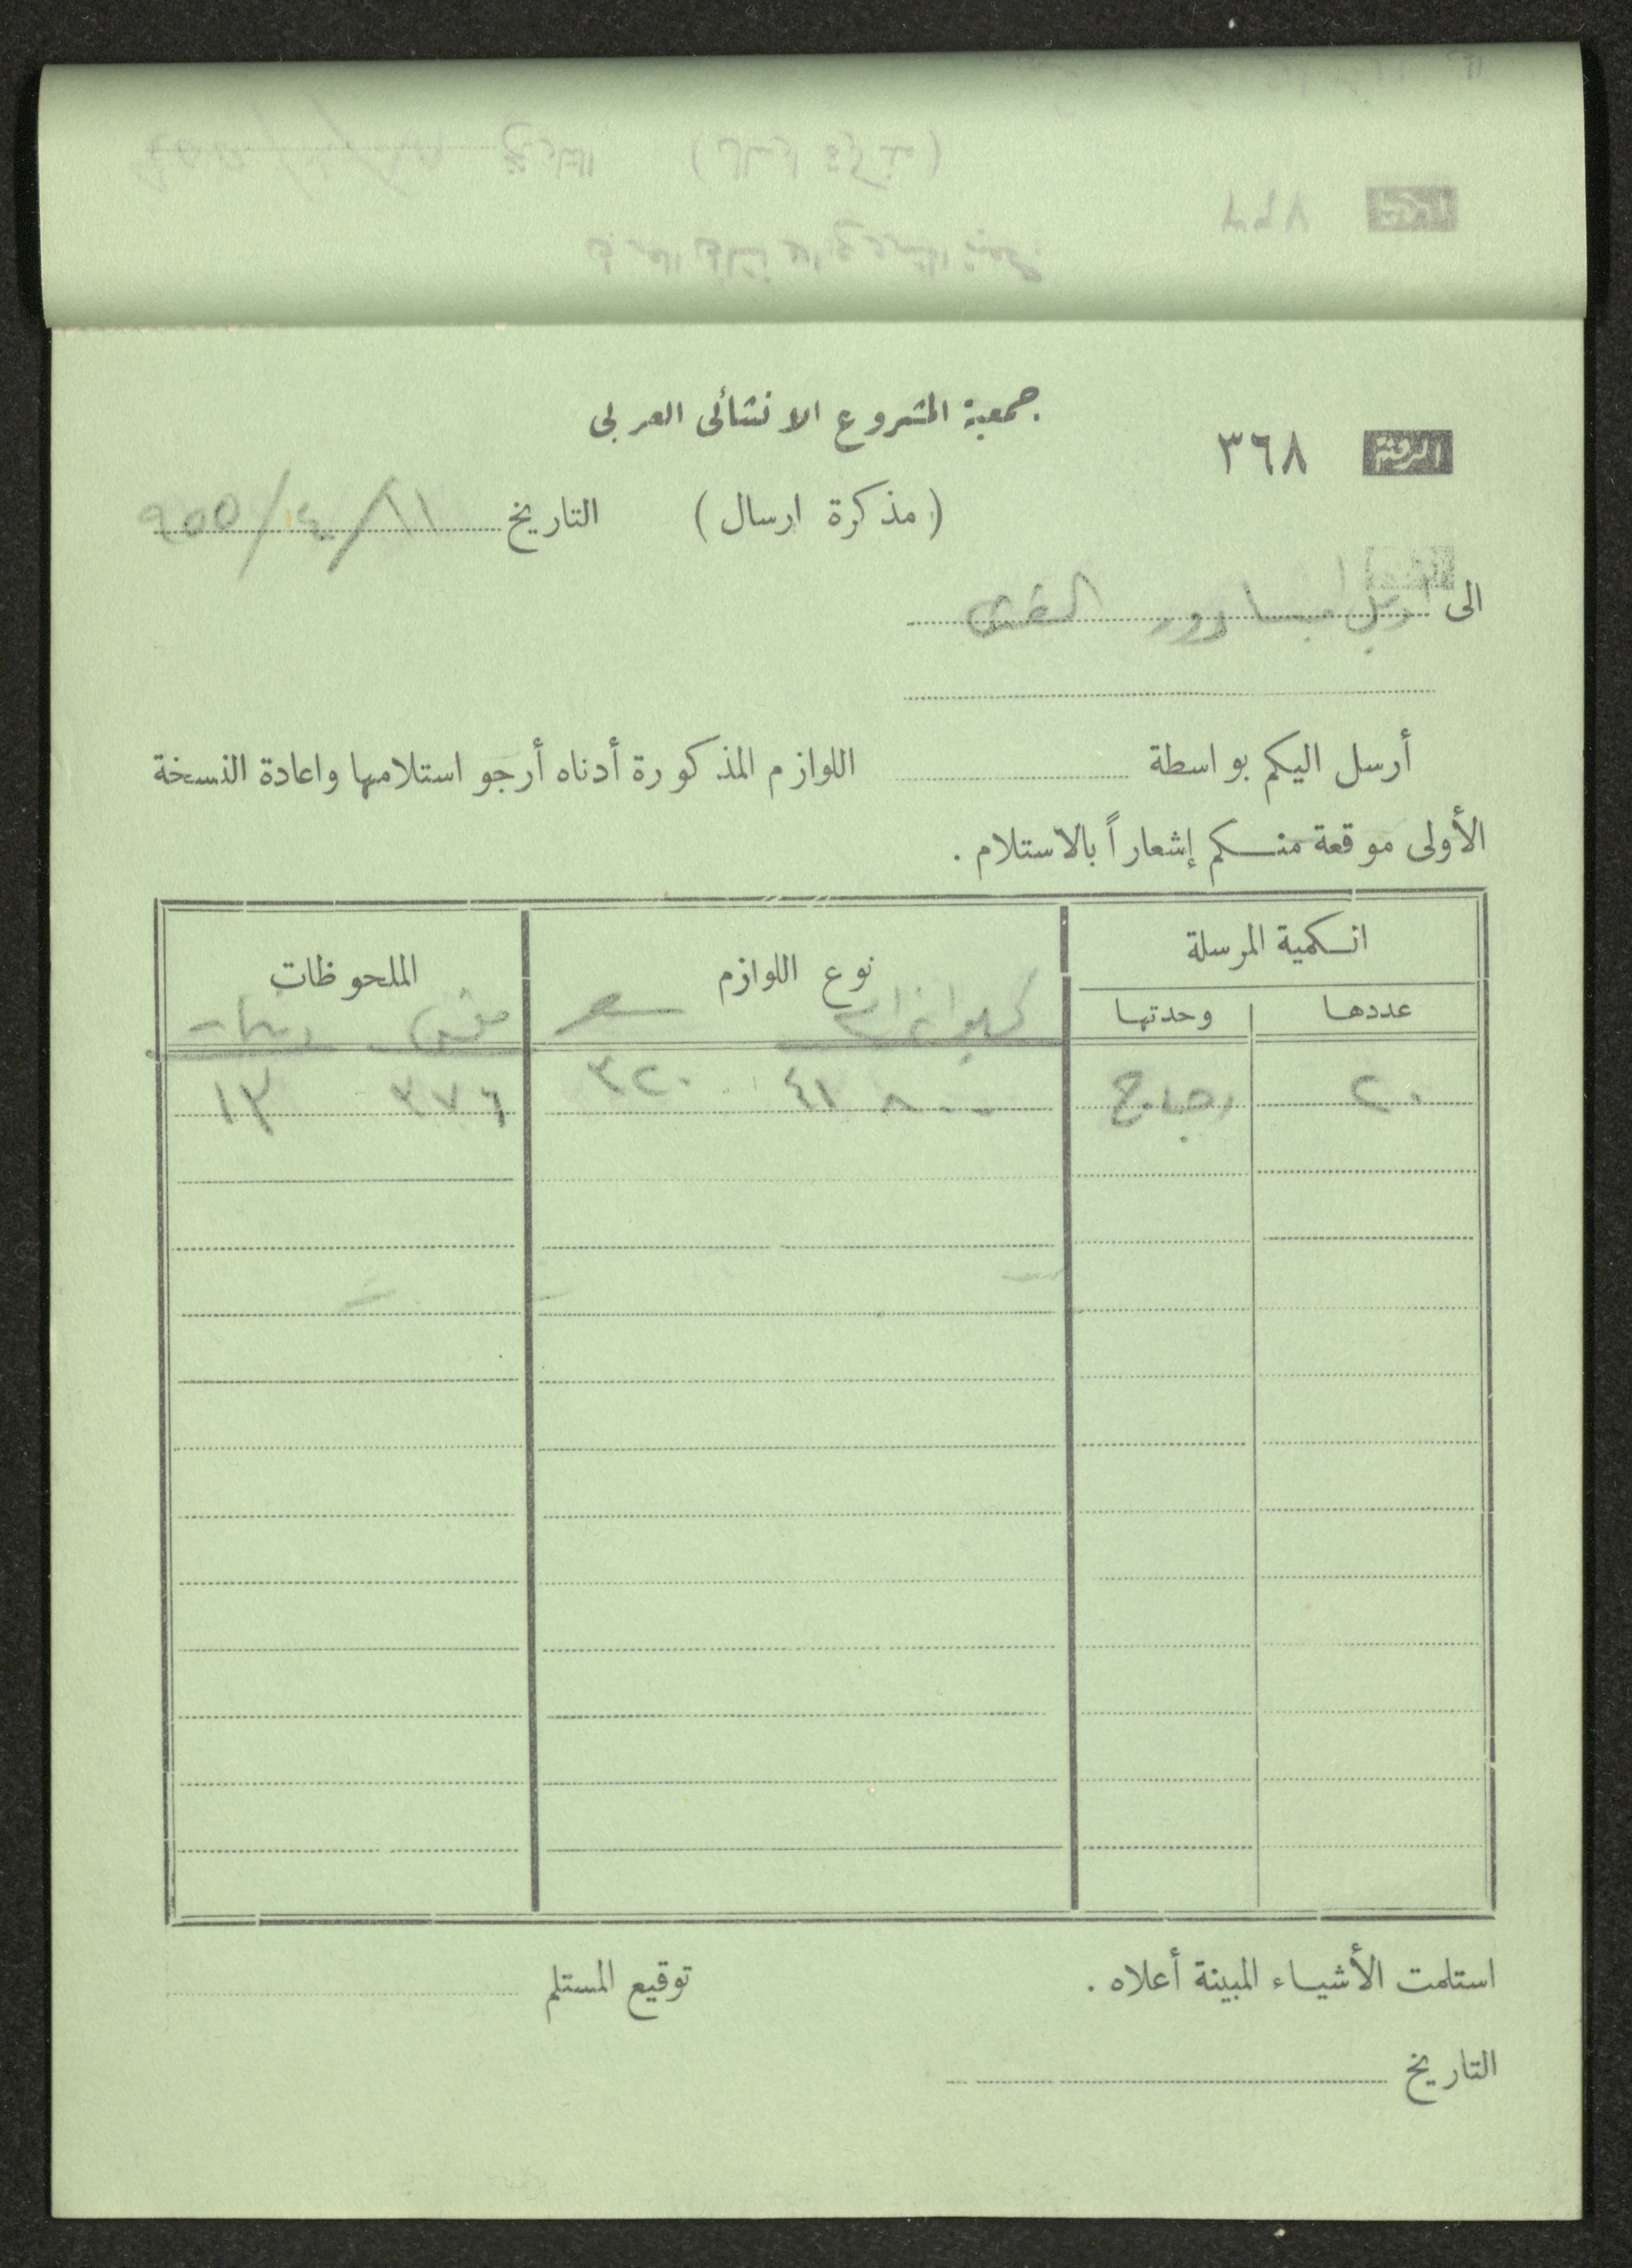 جمعية المشروع الانشائى العربى
الرقم ٣٦٨
(مذكرة ارسال) التاريخ ١١/٤/٩٥٥
الى
أرسل اليكم بواسطة اللوازم المذكورة أدناه أرجو استلامها واعادة النسخة
الأولى موقعة منكم إشعاراً بالاستلام .
الكمية المرسلة نوع اللوازم الملحوظات
عددها وحدتها
كيلو غرامات سعر
٢٠ دجاج ٨٠٠ ٤١ ٣٢٠ ٣٧٦ ١٣
استلمت الأشياء المبينة أعلاه . توقيع المستلم
التاريخ